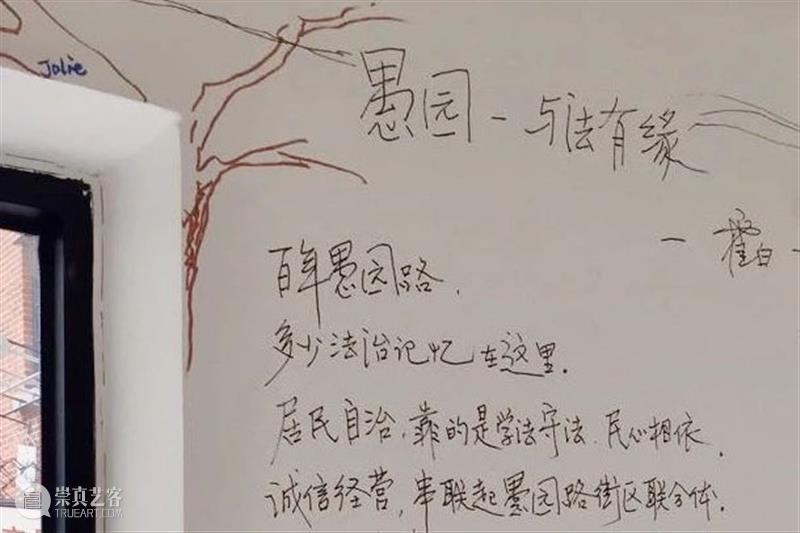 Jolie
愚园一与法有缘
百年愚园路.
多少法治记忆在这里.
居民自治,靠的是学法守法、民心相依.
诚信经营,串联起愚园路街区联合体.
崇真艺客
TRUEART.COM